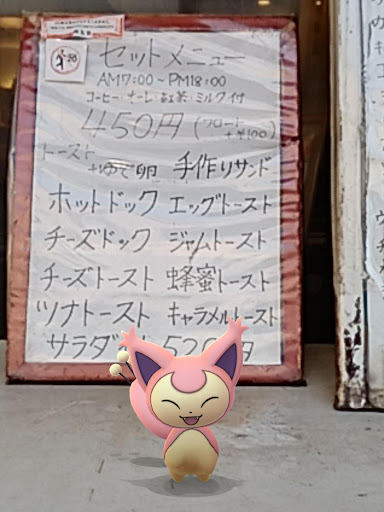 セットメニュー
AM7:00~PM18:00
コーヒー・オーレ・紅茶・ミルク付
450円(フロート +¥100)
トースト +ゆで卵 手作りサンド
ホットドック エッグトースト
チーズドック ジャムトースト
チーズトースト 蜂蜜トースト
ツナトースト キャラメルトースト
サラダ 520円